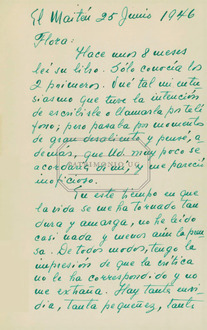 El Maitén 25 Junio 1946
Flora:
Hace unos 8 meses
leí su libro. Sólo conocía los
2 primeros. Qué tal mi entu-
siasmo que tuve la intención
de escribirle o llamarla por telé-
fono; pero pasaba por momentos
de gran desaliento y pensé, a-
demás, que Ud. muy poco se
acordaría de mí, y me pareció
inoficioso.
En este tiempo en que
la vida se me ha tornado tan
dura y amarga, no he leído
casi nada y menos aún la pren-
sa. De todos modos, tengo la
impresión de que la crítica
no le ha correspondido y no
me extraña. Hay tanta envi-
dia, tanta pequeñez, tanta